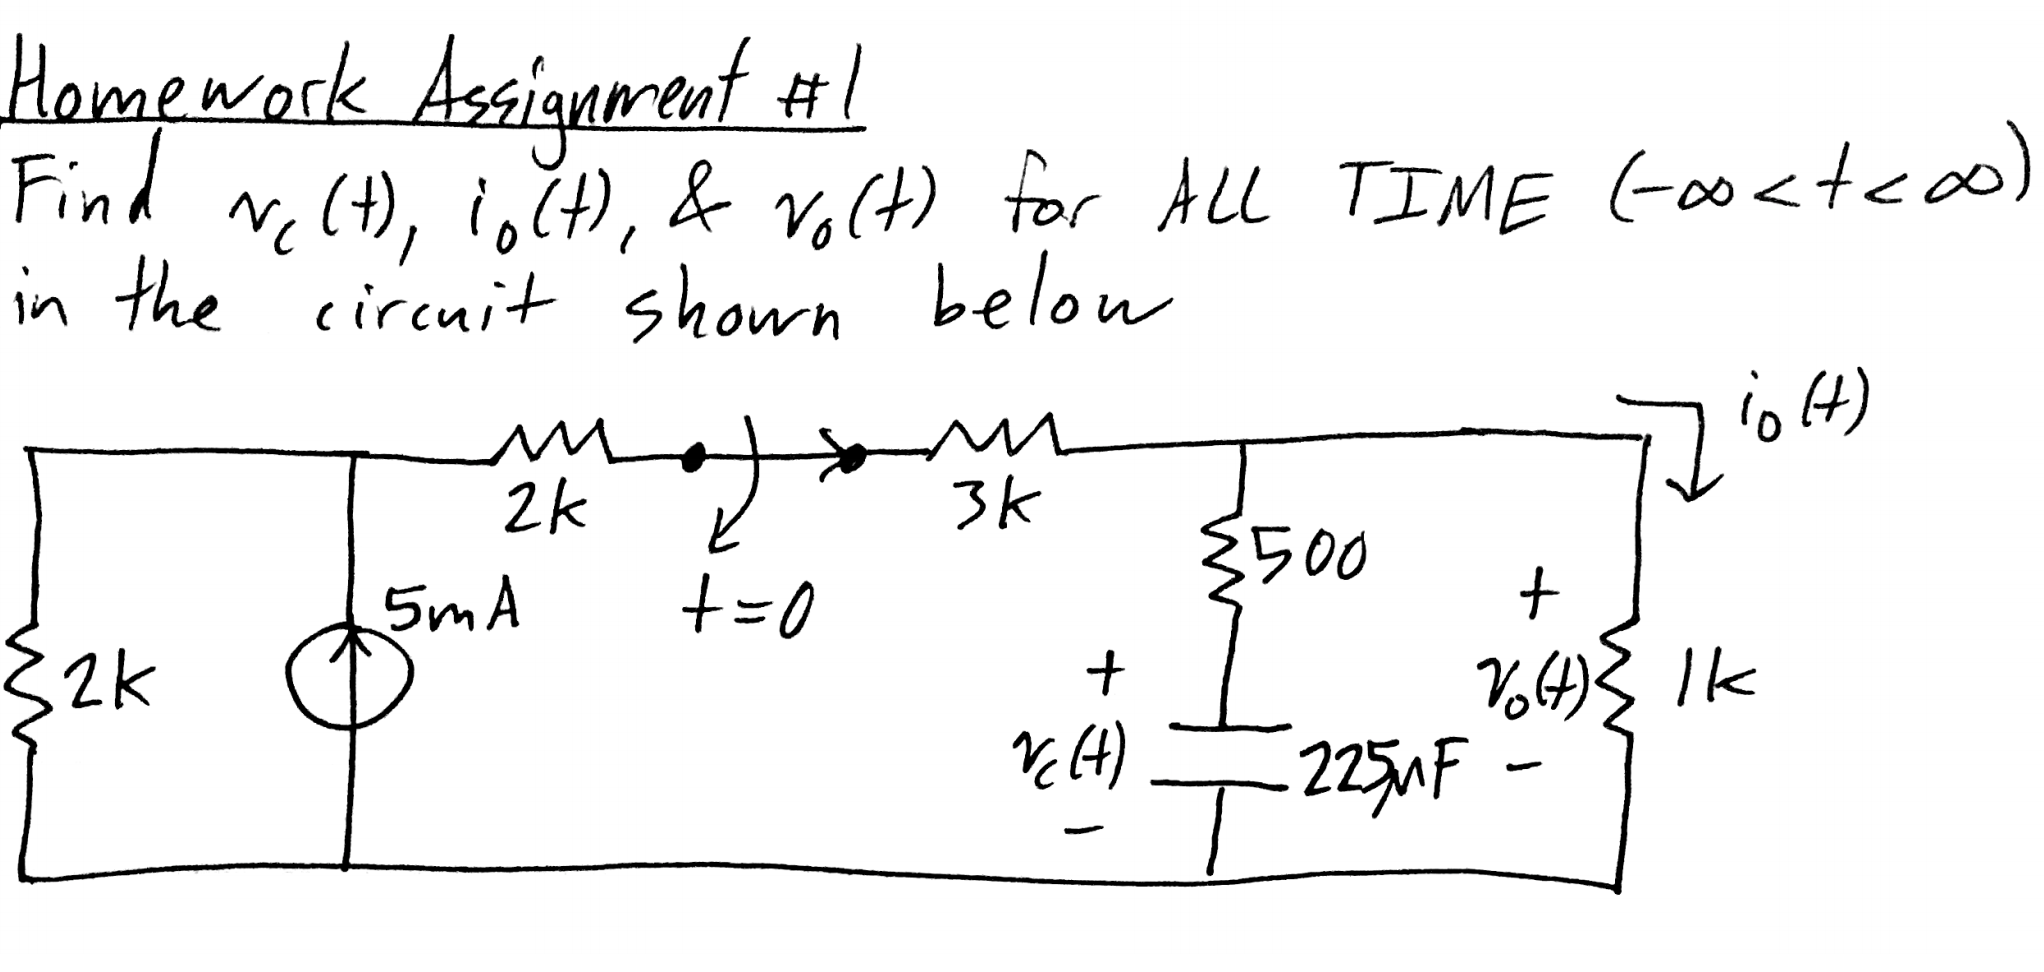 Homework Assignment #1
Find v_c(t), i_o(t), & v_o(t) for ALL TIME (-∞<t<∞)
in the circuit shown below
i_o(t)
2k
3k
500
5mA
t=0
+
2k
+
v_o(t)
1k
v_c(t)
225μF
-
-